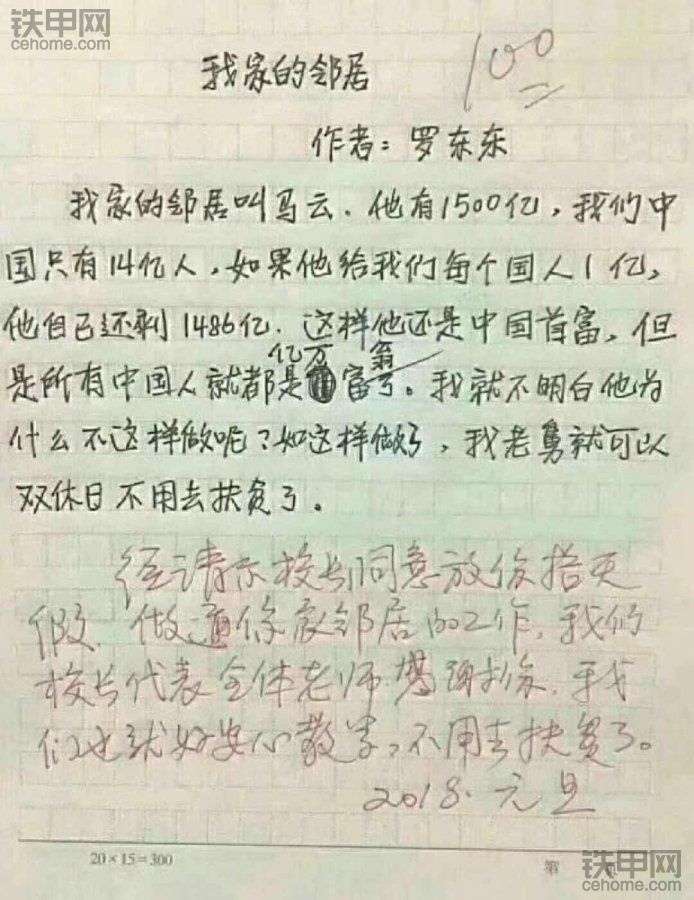 铁甲网
cehome.com
我家的邻居
100
作者：罗东东
我家的邻居叫马云. 他有1500亿，我们中
国只有14亿人，如果他给我们每个国人1亿，
他自己还剩1486亿. 这样他还是中国首富，但
亿万 翁
是所有中国人就都是富了。我就不明白他为
什么不这样做呢？如这样做好了，我老舅就可以
双休日不用去扶贫了。
经请示校长同意放你拾天
假. 做通你家邻居的工作，我们
校长代表全体老师感谢你. 我
们也就好安心教学，不用去扶贫了。
2018. 元旦
20×15=300
第
铁甲网
cehome.com